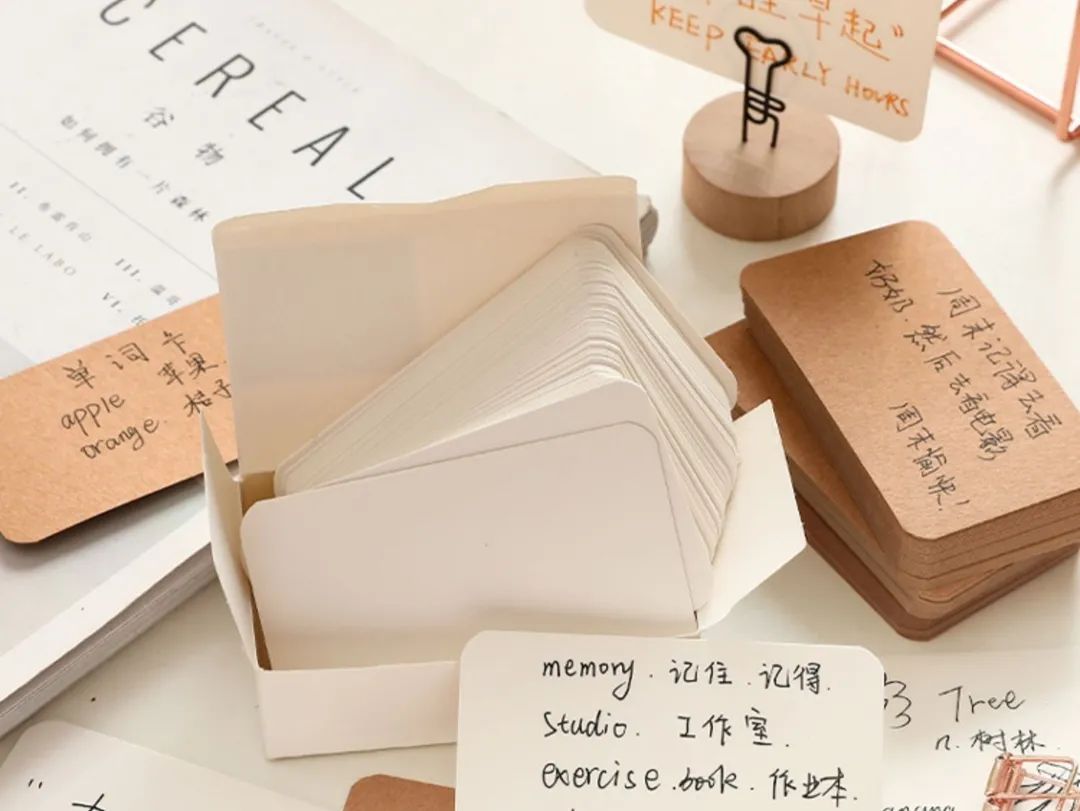 CEREAL
谷物
如何拥有一片森林
II.
LE LABO
III.
VI.
早起”
KEEP EARLY HOURS
单词卡
apple 苹果
orange. 橙子
周末记得去看
奶奶.然后去看电影
周末愉快!
memory. 记住.记得.
studio. 工作室.
exercise.book. 作业本.
Tree
n. 树林.